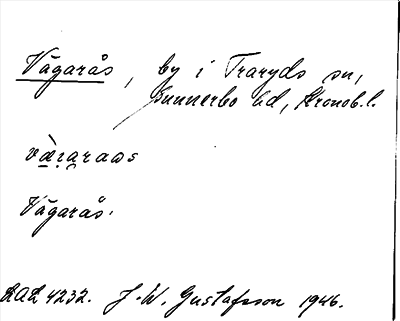 Vägarås, by i Traryds sn,
Sunnerbo hd, Kronob. l.
Vägarås.
DAL 4232. J. W. Gustafsson 1946.